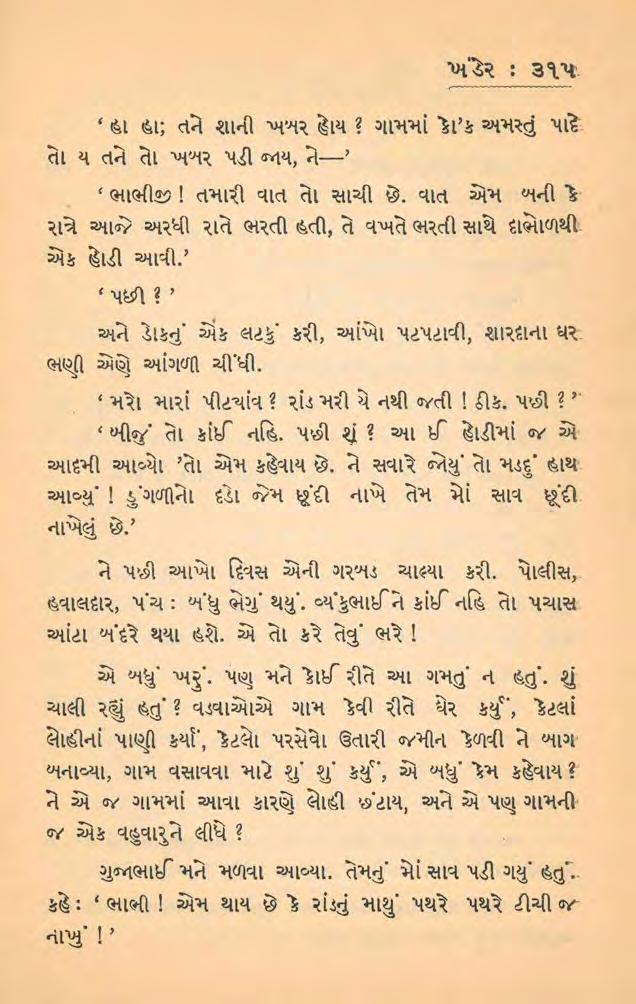 ખંડેર : ૩૧૫
‘ હા હા; તને શાની ખબર હોય ? ગામમાં કો’ક અમસ્તું પાદે
તો ય તને તો ખબર પડી જાય, ને—’
‘ ભાભીજી ! તમારી વાત તો સાચી છે. વાત એમ બની કે
રાત્રે આજે અરધી રાતે ભરતી હતી, તે વખતે ભરતી સાથે દાભોળથી
એક હોડી આવી.’
‘ પછી ? ’
અને ડોકનું એક લટકું કરી, આંખો પટપટાવી, શારદાના ઘર
ભણી એણે આંગળી ચીંધી.
‘ મરો મારાં પીટ્યાંવ ? રાંડ મરી યે નથી જતી ! ઠીક. પછી ? ’
‘ બીજું તો કાંઈ નહિ. પછી શું ? આ ઈ હોડીમાં જ એ
આદમી આવ્યો ’તો એમ કહેવાય છે. ને સવારે જોયું તો મડદું હાથ
આવ્યું ! ડુંગળીનો દડો જેમ છૂંદી નાખે તેમ મોં સાવ છૂંદી
નાખેલું છે.’
ને પછી આખો દિવસ એની ગરબડ ચાલ્યા કરી. પોલીસ,
હવાલદાર, પંચ : બંધુ ભેગું થયું. વ્યંકુભાઈને કાંઈ નહિ તો પચાસ
આંટા બંદરે થયા હશે. એ તો કરે તેવું ભરે !
એ બધું ખરું. પણ મને કોઈ રીતે આ ગમતું ન હતું. શું
ચાલી રહ્યું હતું ? વડવાઓએ ગામ કેવી રીતે ઘેર કર્યું, કેટલાં
લોહીનાં પાણી કર્યાં, કેટલો પરસેવો ઉતારી જમીન કેળવી ને બાગ
બનાવ્યા, ગામ વસાવવા માટે શું શું કર્યું, એ બધું કેમ કહેવાય ?
ને એ જ ગામમાં આવા કારણે લોહી છંટાય, અને એ પણ ગામની
જ એક વહુવારુને લીધે ?
ગુજાભાઈ મને મળવા આવ્યા. તેમનું મોં સાવ પડી ગયું હતું.
કહે : ‘ ભાભી ! એમ થાય છે કે રાંડનું માથું પથરે પથરે ટીચી જ
નાખું ! ’